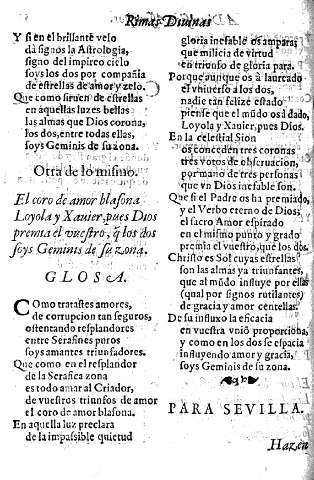 Rimas Diuinas
Y si en el brillante velo
dà signos la Astrologia,
signo del impireo cielo
soys los dos por compañia
de estrellas de amor y zelo.
Que como siruen de estrellas
en aquellas luzes bellas
las almas que Dios corona,
los dos, entre todas ellas,
soys Geminis de su zona.
Otra de lo mismo.
El coro de amor blasona
Loyola y Xauier, pues Dios
premia el vuestro, q̃ los dos
soys Geminis de su zona.
GLOSA.
Como tratastes amores,
de corrupcion tan seguros,
ostentando resplandores
entre Serafines poros
soys amantes triunfadores.
Que como en el resplandor
de la Serafica zona
es todo amar al Criador,
de vuestros triunfos de amor
el coro de amor blasona.
En aquella luz preclara
de la impassible quietud
gloria inefable os ampara;
que milicia de virtud
en triunfo de gloria para.
Porque aunque os à laureado
el vniuerso à los dos,
nadie tan felize estado
piense que el mũdo os à dado,
Loyola y Xauier, pues Dios.
En la celestial Sion
os conceden tres coronas
tres votos de obseruacion,
por mano de tres personas
que vn Dios inefable son.
Que si el Padre os ha premiado,
y el Verbo eterno de Dios;
el sacro Amor espirado
en el mismo punto y grado
premia el vuestro, que los dos.
Christo es Sol cuyas estrellas
son las almas ya triunfantes,
que al mũdo influye por ellas
(qual por signos rutilantes)
de gracia y amor centellas.
De su influxo la eficacia
en vuestra vniõ proporciona,
y como en los dos se espacia
influyendo amor y gracia,
soys Geminis de su zona.
PARA SEVILLA.
Hazen